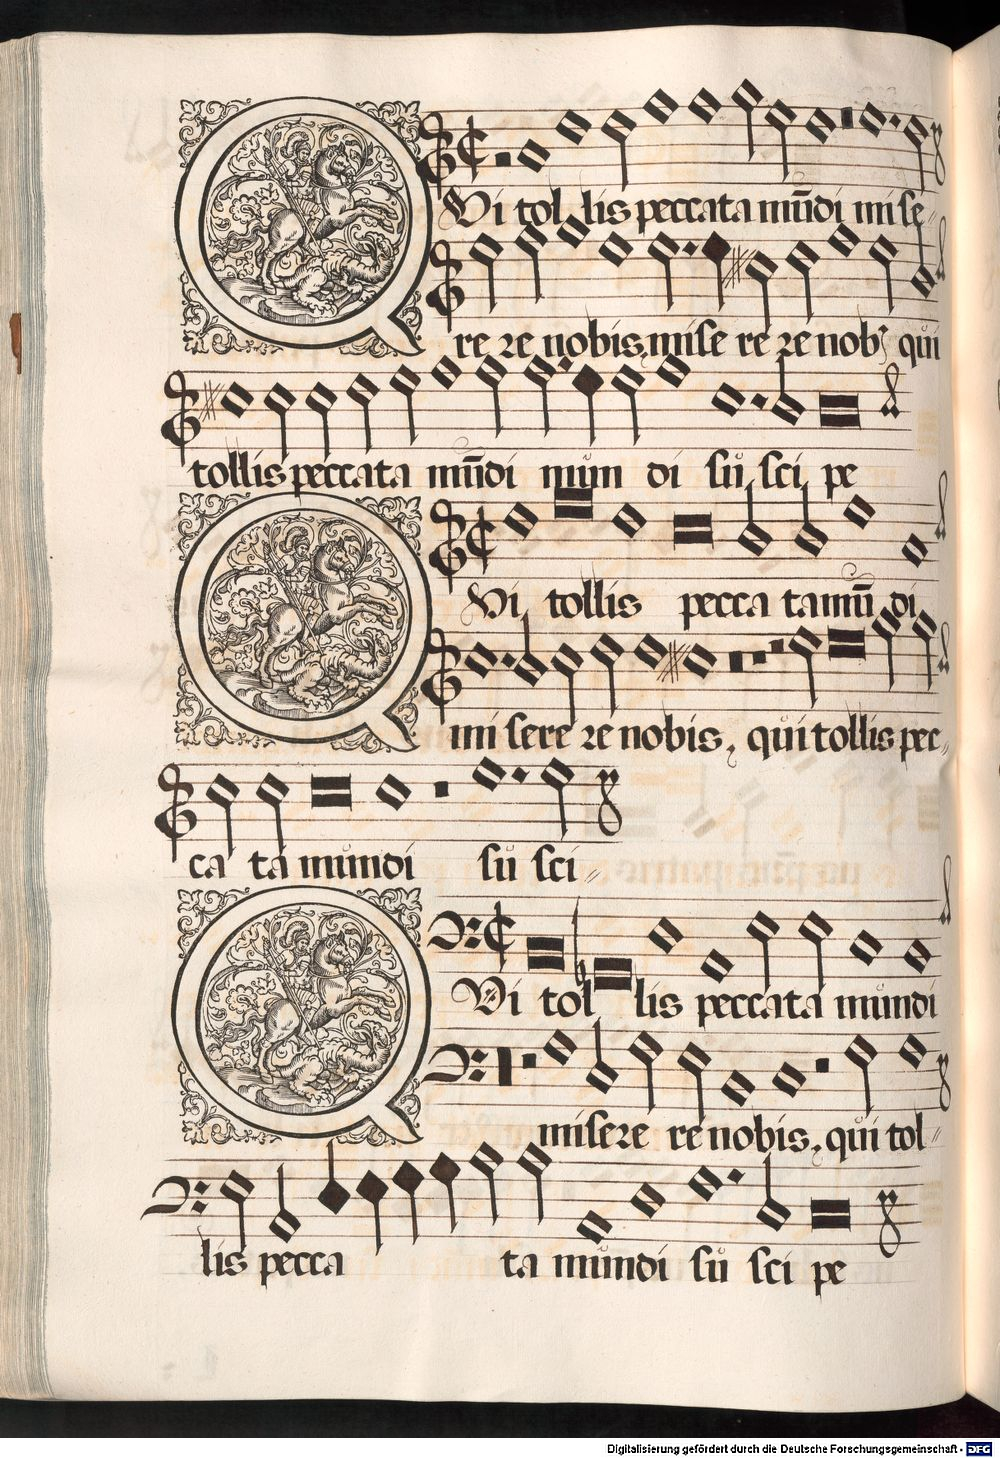 QVi tol lis peccata mūdi mise-
re re nobis, mise re re nobꝫ qui
tollis peccata mūdi mun di su sci pe
QVi tollis pecca ta mū di
mi sere re nobis, qui tollis pec-
ca ta mundi su sci-
QVi tol lis peccata mundi
misere re nobis, qui tol-
lis pecca ta mundi su sci pe
Digitalisierung gefördert durch die Deutsche Forschungsgemeinschaft - DFG